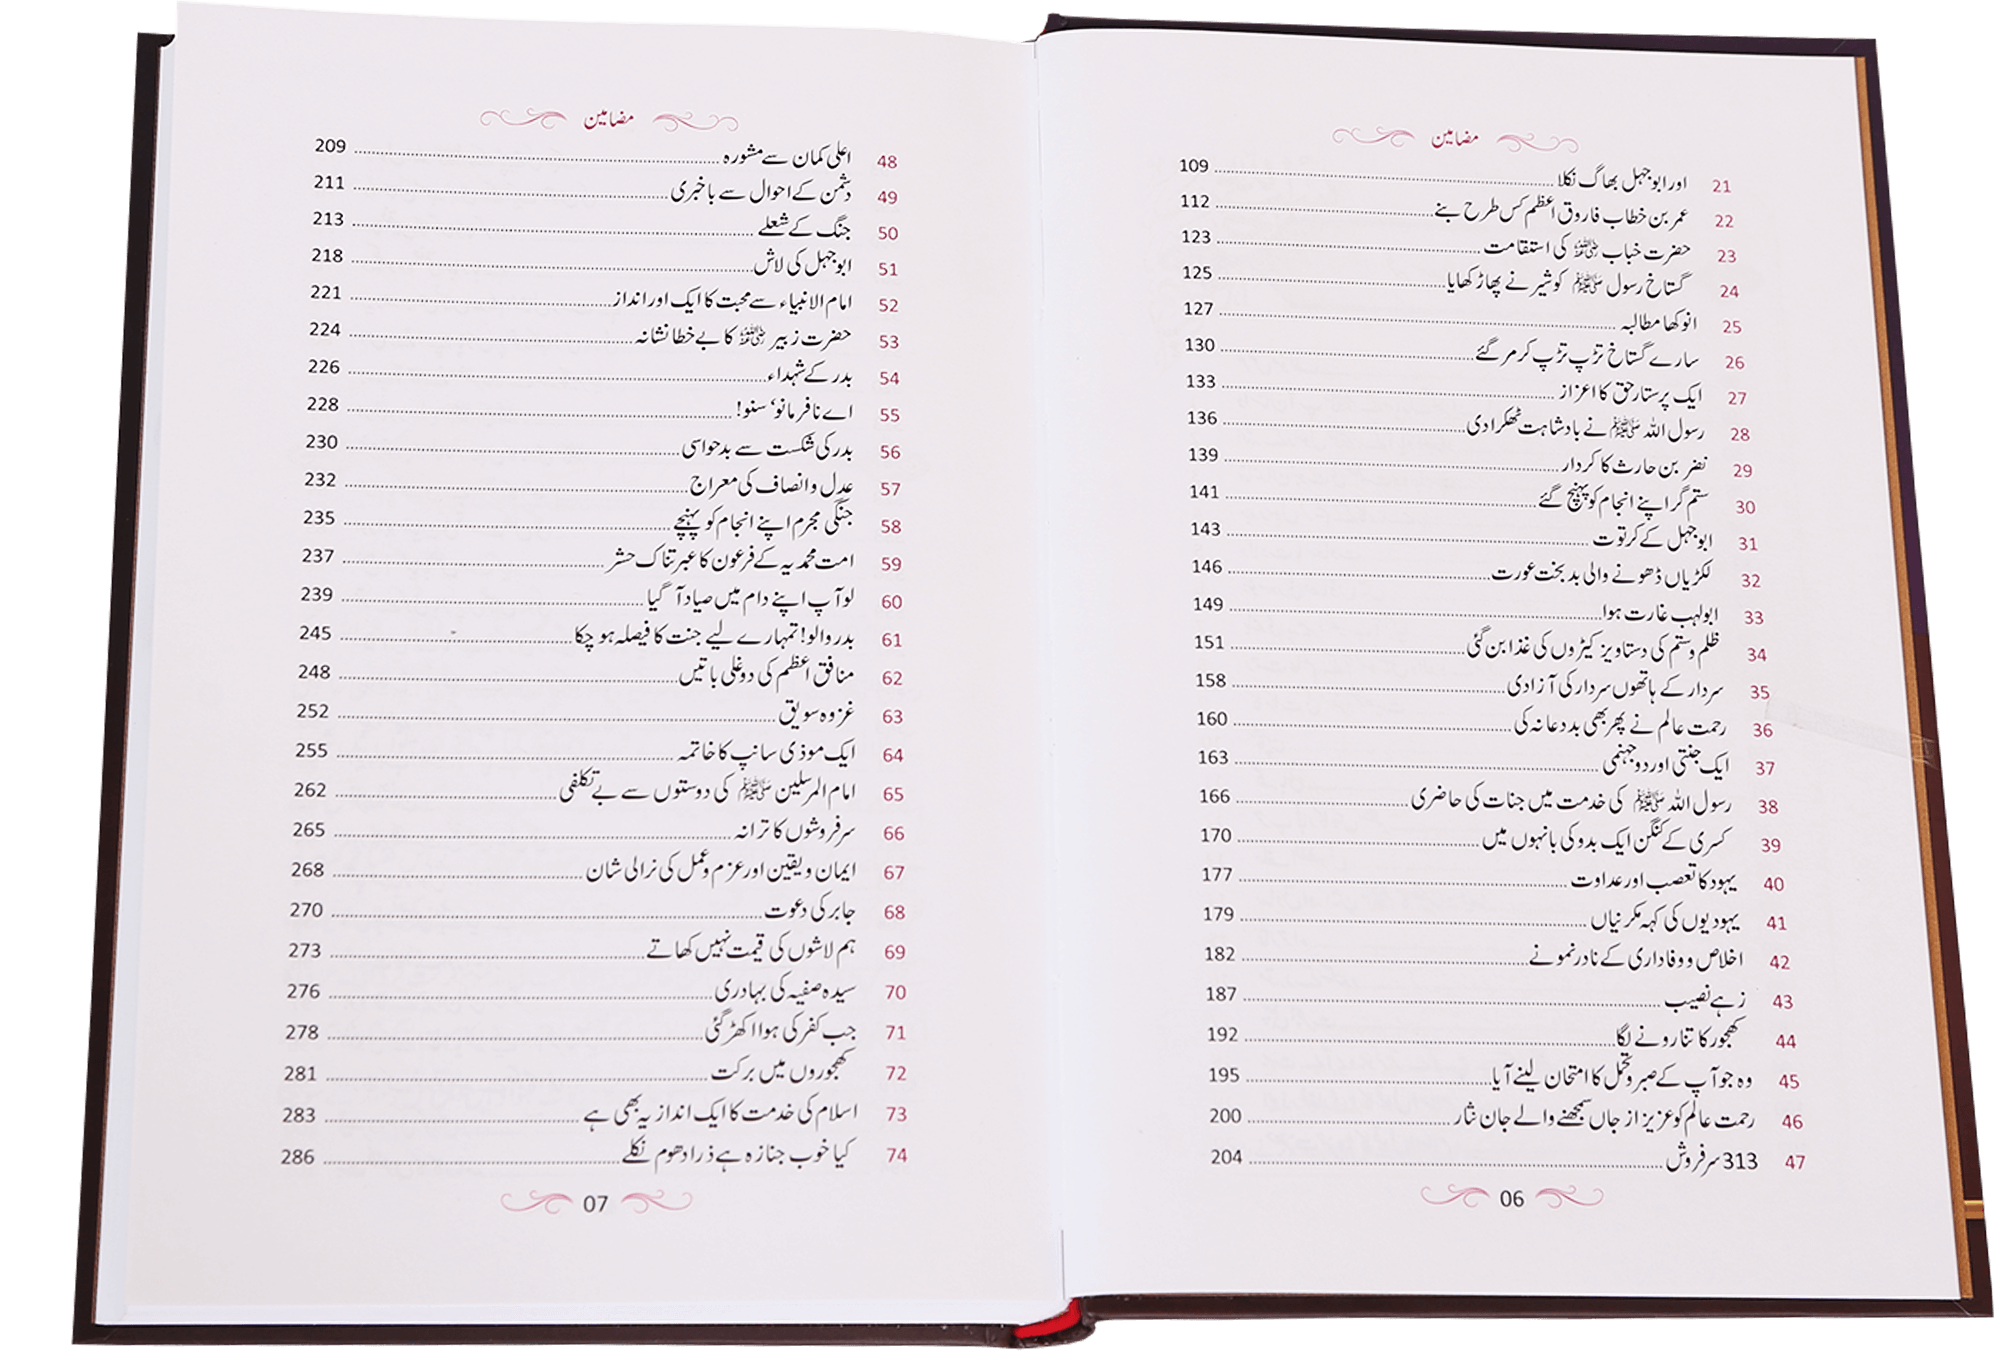 مضامین
21 اور ابوجہل بھاگ نکلا 109
22 عمر بن خطاب فاروق اعظم کس طرح بنے 112
23 حضرت خباب رضی اللہ عنہ کی استقامت 123
24 گستاخ رسول ﷺ کو شیر نے پھاڑ کھایا 125
25 انوکھا مطالبہ 127
26 سارے گستاخ تڑپ تڑپ کر مر گئے 130
27 ایک پرستار حق کا اعزاز 133
28 رسول اللہ ﷺ نے بادشاہت ٹھکرا دی 136
29 نضر بن حارث کا کردار 139
30 ستم گر اپنے انجام کو پہنچ گئے 141
31 ابوجہل کے کرتوت 143
32 لکڑیاں ڈھونے والی بدبخت عورت 146
33 ابولہب غارت ہوا 149
34 ظلم و ستم کی دستاویز کیڑوں کی غذا بن گئی 151
35 سردار کے ہاتھوں سردار کی آزادی 158
36 رحمت عالم نے پھر بھی بددعا نہ کی 160
37 ایک جنتی اور دو جہنمی 163
38 رسول اللہ ﷺ کی خدمت میں جنات کی حاضری 166
39 کسری کے کنگن ایک بدو کی بانہوں میں 170
40 یہود کا تعصب اور عداوت 177
41 یہودیوں کی کہہ مکرنیاں 179
42 اخلاص و وفاداری کے نادر نمونے 182
43 زہے نصیب 187
44 کھجور کا تنا رونے لگا 192
45 وہ جو آپ کے صبر و تحمل کا امتحان لینے آیا 195
46 رحمت عالم کو عزیز از جاں سمجھنے والے جان نثار 200
47 313 سرفروش 204
06
مضامین
48 اعلی کمان سے مشورہ 209
49 دشمن کے احوال سے باخبری 211
50 جنگ کے شعلے 213
51 ابوجہل کی لاش 218
52 امام الانبیاء سے محبت کا ایک اور انداز 221
53 حضرت زبیر رضی اللہ عنہ کا بے خطا نشانہ 224
54 بدر کے شہداء 226
55 اے نافرمانو‘ سنو! 228
56 بدر کی شکست سے بدحواسی 230
57 عدل و انصاف کی معراج 232
58 جنگی مجرم اپنے انجام کو پہنچے 235
59 امت محمدیہ کے فرعون کا عبرتناک حشر 237
60 لو آپ اپنے دام میں صیاد آ گیا 239
61 بدر والو! تمہارے لیے جنت کا فیصلہ ہو چکا 245
62 منافق اعظم کی دوغلی باتیں 248
63 غزوہ سویق 252
64 ایک موذی سانپ کا خاتمہ 255
65 امام المرسلین ﷺ کی دوستوں سے بے تکلفی 262
66 سرفروشوں کا ترانہ 265
67 ایمان و یقین اور عزم و عمل کی نرالی شان 268
68 جابر کی دعوت 270
69 ہم لاشوں کی قیمت نہیں کھاتے 273
70 سیدہ صفیہ کی بہادری 276
71 جب کفر کی ہوا اکھڑ گئی 278
72 کھجوروں میں برکت 281
73 اسلام کی خدمت کا ایک انداز یہ بھی ہے 283
74 کیا خوب جنازہ ہے ذرا دھوم نکلے 286
07